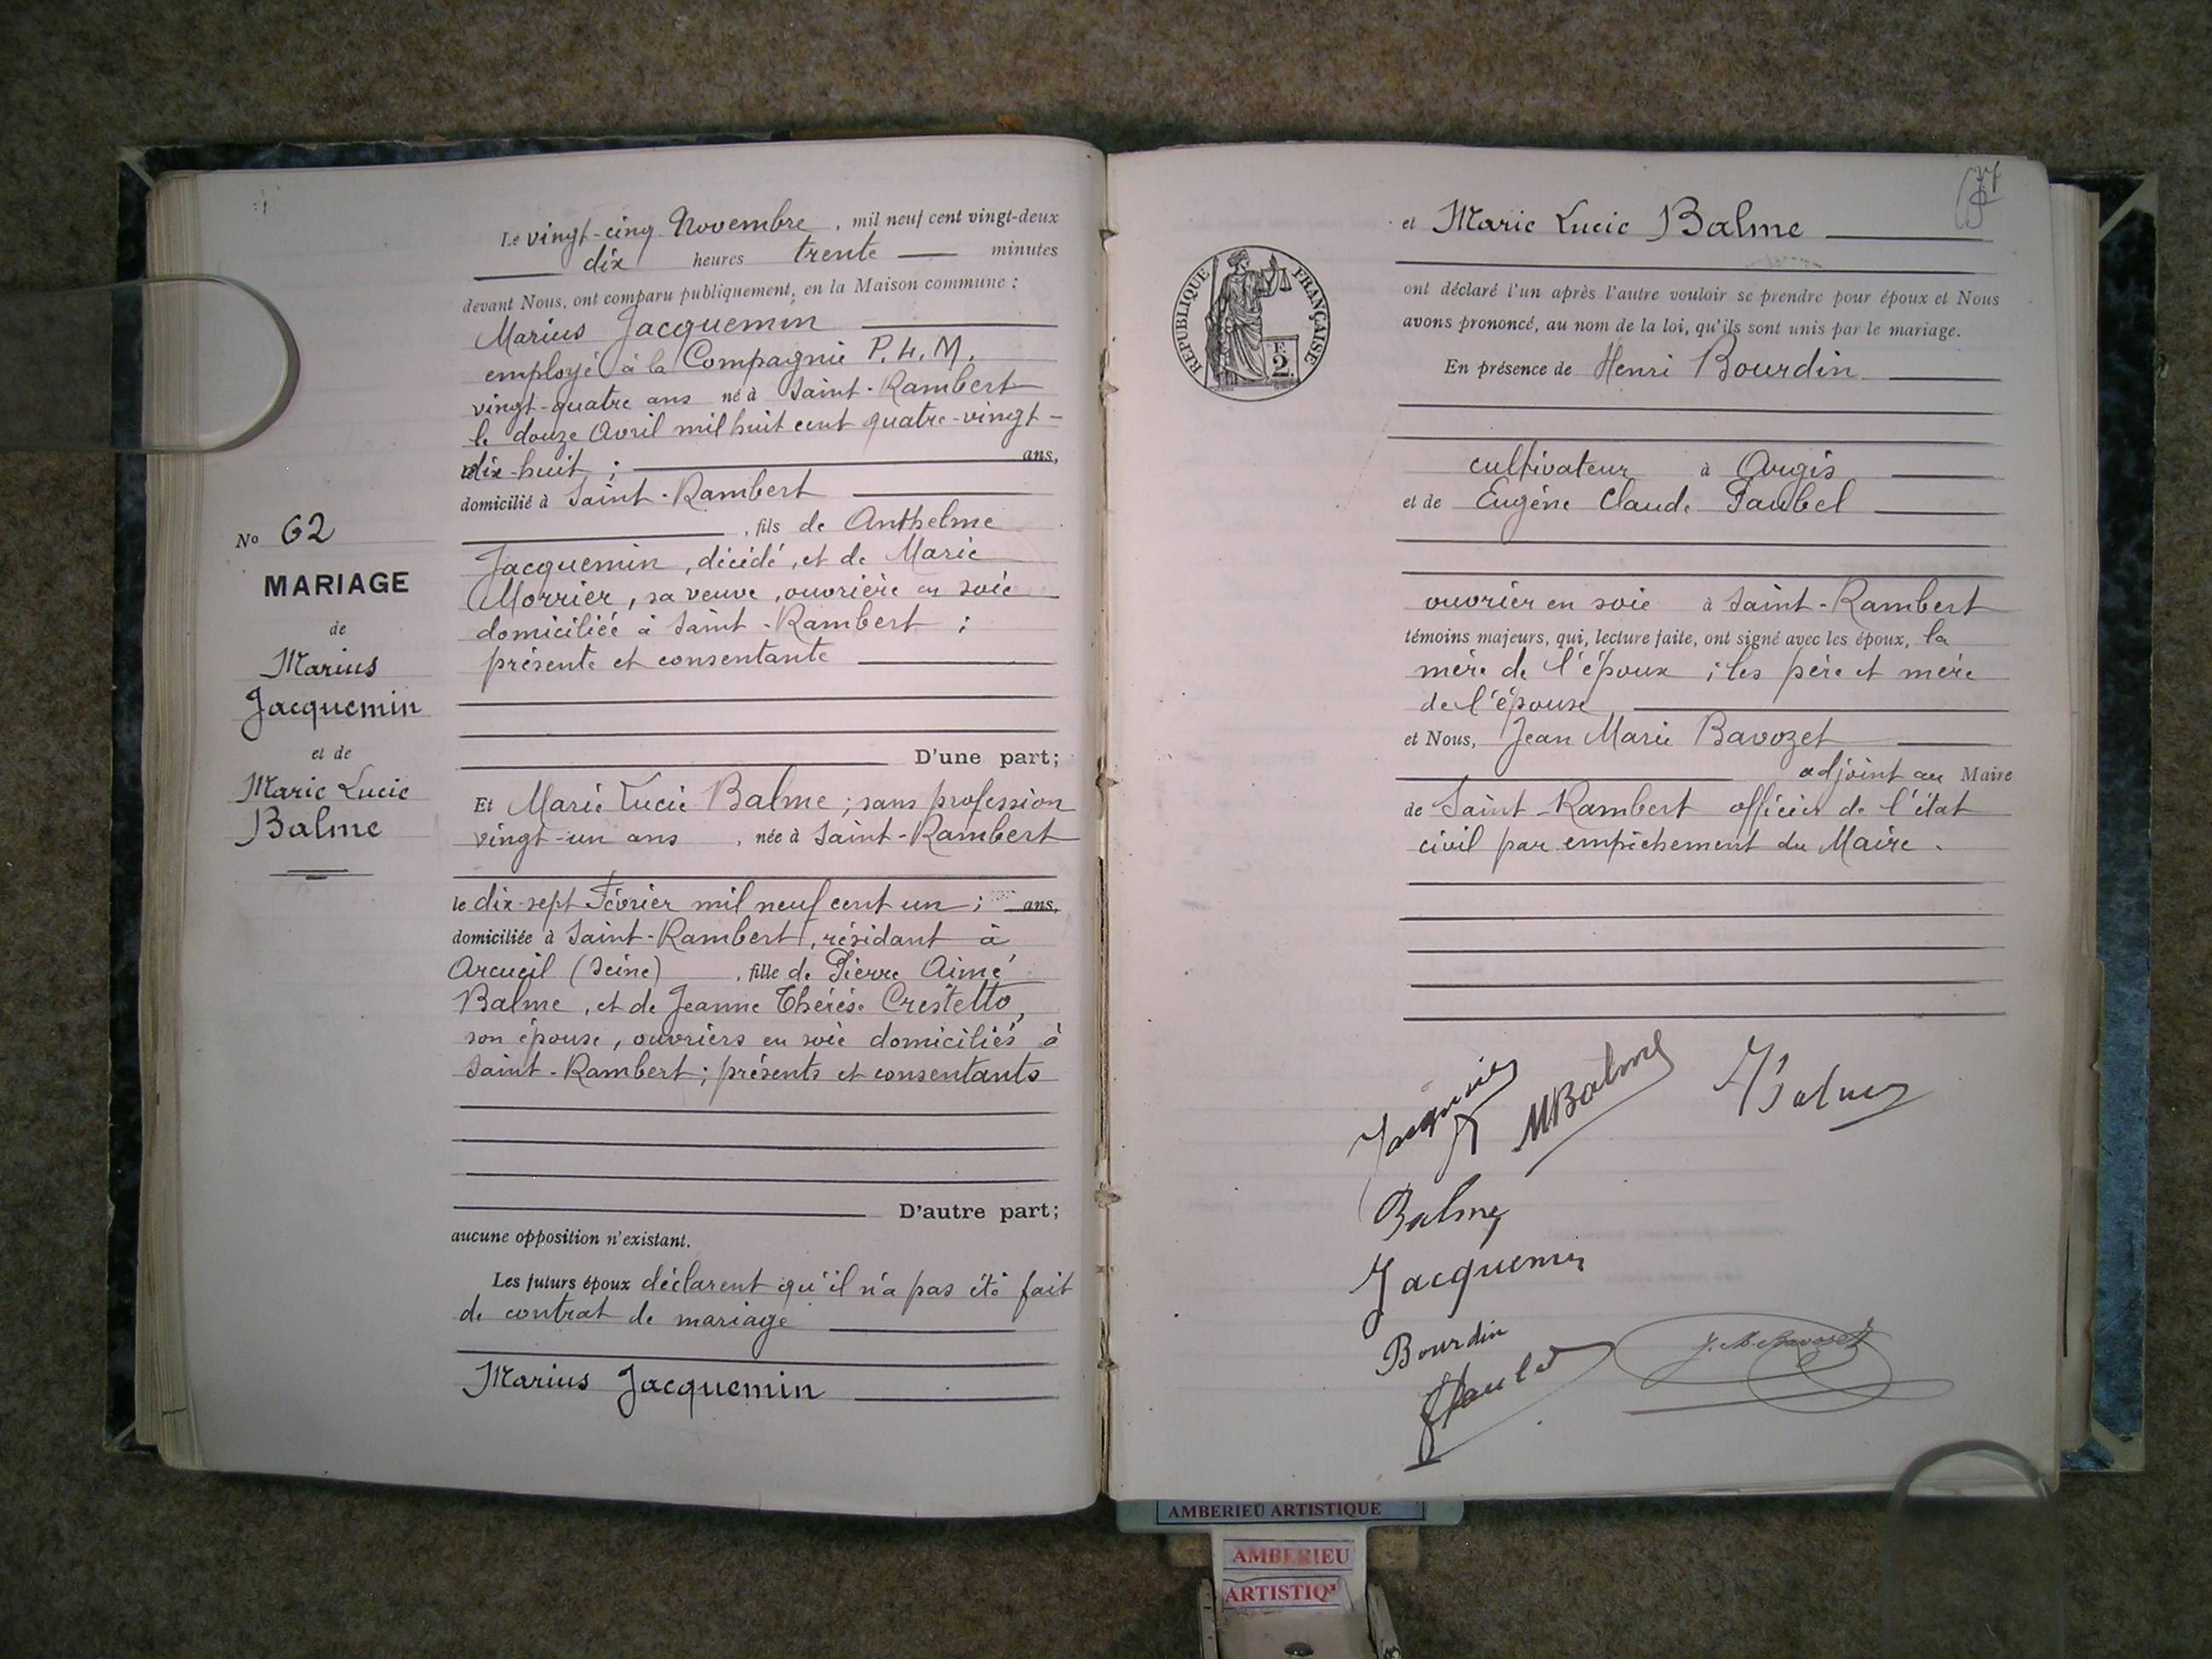 Le vingt-cinq Novembre, mil neuf cent vingt-deux
dix heures trente minutes
devant Nous, ont comparu publiquement, en la Maison commune :
Marius Jacquemin
employé à la Compagnie P. L. M.
vingt-quatre ans né à Saint-Rambert
le douze Avril mil huit cent quatre-vingt-
dix-huit ; ans,
domicilié à Saint-Rambert
, fils de Anthelme
Jacquemin, décédé, et de Marie
Morrier, sa veuve, ouvrière en soie
domiciliée à Saint-Rambert ;
présente et consentante
D'une part;
No 62
MARIAGE
de
Marius
Jacquemin
et de
Marie Lucie
Balme
Et Marie Lucie Balme ; sans profession
vingt-un ans , née à Saint-Rambert
le dix-sept Février mil neuf cent un ; ans,
domiciliée à Saint-Rambert, résidant à
Arcueil (Seine) , fille de Pierre Aimé
Balme, et de Jeanne Thérèse Crestetto,
son épouse, ouvriers en soie domiciliés à
Saint-Rambert ; présents et consentants
D'autre part;
aucune opposition n'existant.
Les futurs époux déclarent qu'il n'a pas été fait
de contrat de mariage
Marius Jacquemin
et Marie Lucie Balme
RÉPUBLIQUE FRANÇAISE
F.
2.
ont déclaré l'un après l'autre vouloir se prendre pour époux et Nous
avons prononcé, au nom de la loi, qu'ils sont unis par le mariage.
En présence de Henri Bourdin
cultivateur à Argis
et de Eugène Claude Paubel
ouvrier en soie à Saint-Rambert
témoins majeurs, qui, lecture faite, ont signé avec les époux, la
mère de l'époux ; les père et mère
de l'épouse
et Nous, Jean Marie Bavozet
adjoint au Maire
de Saint-Rambert officier de l'état
civil par empêchement du Maire.
MBalme
Balme
Jacquemin
Bourdin
J. M. Bavozet
AMBERIEU ARTISTIQUE
AMBERIEU
ARTISTIQ